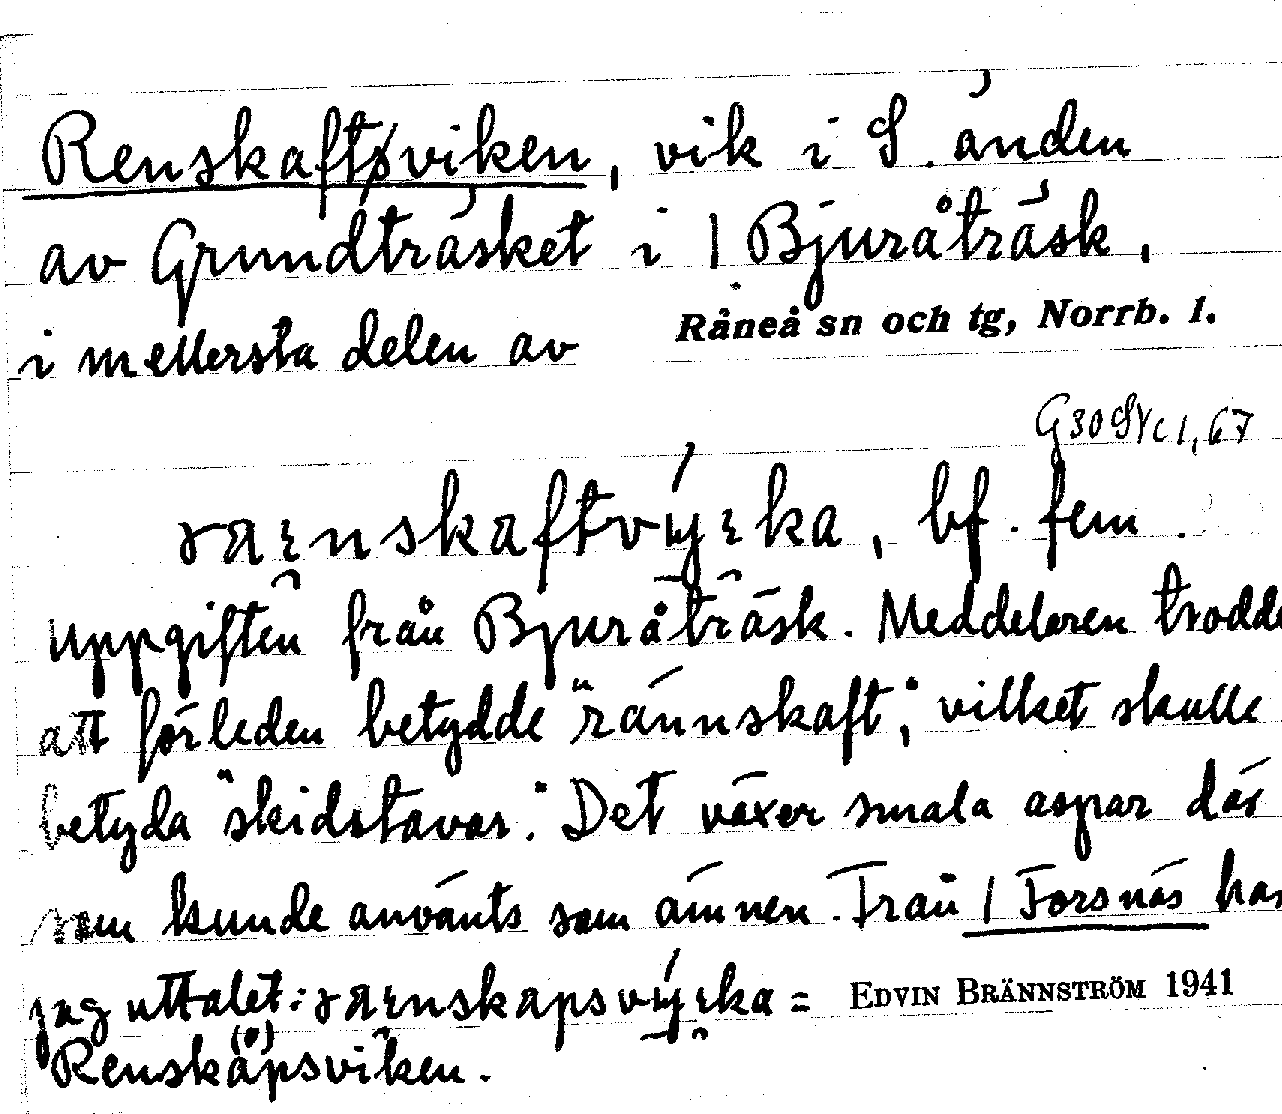 Renskaftsviken, vik i S. änden
av Grundträsket i | Bjuråträsk,
i mellersta delen av Råneå sn och tg, Norrb. l.
G30SVc1,67
bf. fem.
Uppgiften från Bjuråträsk. Meddelaren trodde
att förleden betydde "rännskaft", vilket skulle
betyda "skidstavar". Det växer smala aspar där
som kunde använts som ämnen. Från | Forsnäs har
jag uttalet: = EDVIN BRÄNNSTRÖM 1941
Renskapsviken.